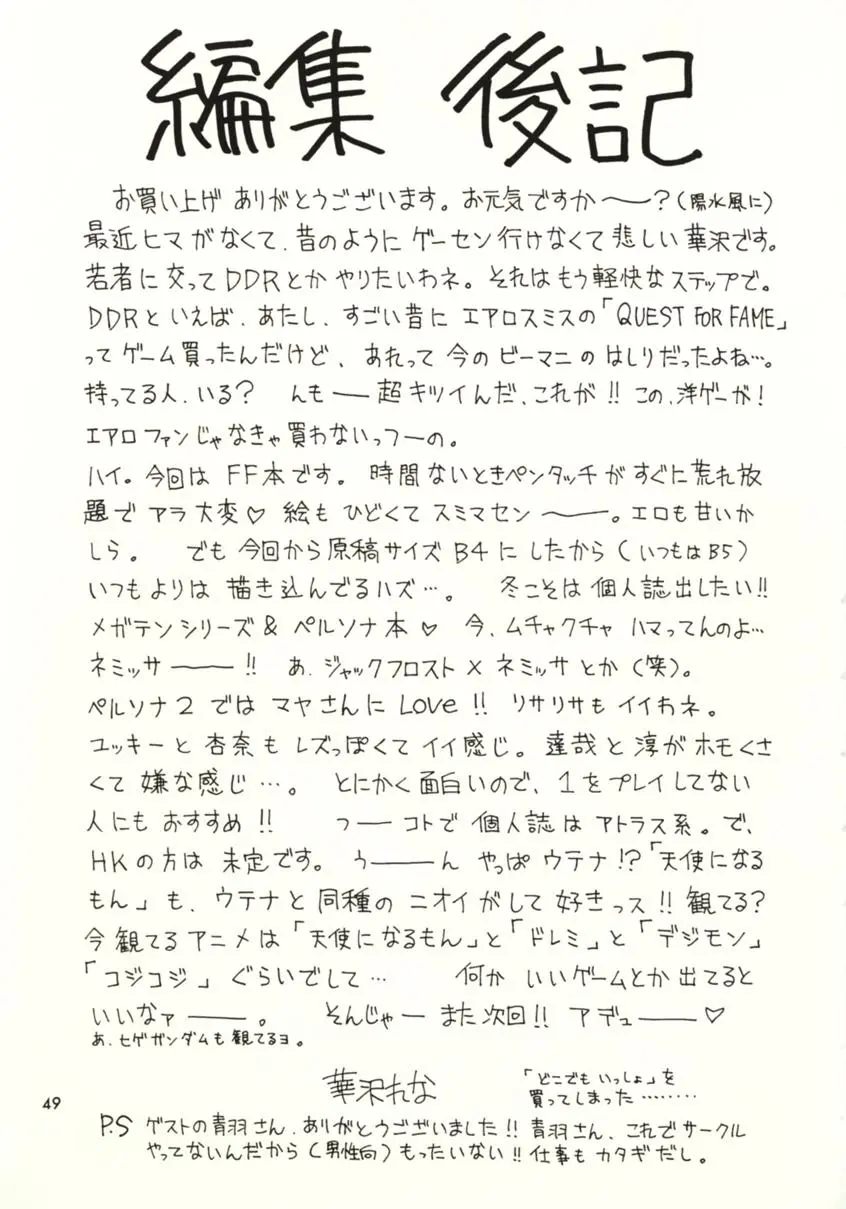 編集 後記
お買い上げ ありがとうございます。お元気ですか〜？(陽水風に)
最近ヒマがなくて、昔のように ゲーセン行けなくて悲しい 華沢です。
若者に交って DDRとか やりたいわネ。それはもう軽快な ステップで。
DDRといえば、あたし、すごい昔に エアロスミスの「QUEST FOR FAME」
ってゲーム買ったんだけど、あれって今のビーマニの はしりだったよね…。
持ってる人、いる？ んもー超キツイんだ、これが!! この、洋ゲーが!
エアロファンじゃなきゃ買わないっつーの。
ハイ。今回は FF本です。時間ないときペンタッチがすぐに荒れ放
題で アラ大変♡ 絵もひどくて スミマセン〜。エロも甘いか
しら。 でも今回から原稿サイズB4にしたから(いつもはB5)
いつもよりは 描き込んでるハズ…。 冬こそは個人誌出したい!!
メガテンシリーズ & ペルソナ本♡ 今、ムチャクチャ ハマってんのよ…
ネミッサー!! あ、ジャックフロスト×ネミッサとか(笑)。
ペルソナ2では マヤさんに LOVE!! リサリサも イイわネ。
ユッキーと 杏奈も レズっぽくてイイ感じ。達哉と淳がホモくさ
くて 嫌な感じ…。 とにかく面白いので、1をプレイしてない
人にも おすすめ!! つーコトで 個人誌は アトラス系。で、
HKの方は 未定です。うーん やっぱ ウテナ!?「天使になる
もん」も、ウテナと同種の ニオイがして好きっス!! 観てる?
今観てるアニメは「天使になるもん」と「ドレミ」と「デジモン」
「コジコジ」ぐらいでして… 何か いいゲームとか出てると
いいなァー。 そんじゃー また次回!! アデューー♡
あ、ヒゲガンダムも観てるョ。
華沢れな
「どこでもいっしょ」を
買ってしまった………
49
P.S ゲストの青羽さん、ありがとうございました!! 青羽さん、これでサークル
やってないんだから(男性向)もったいない!! 仕事も カタギだし。